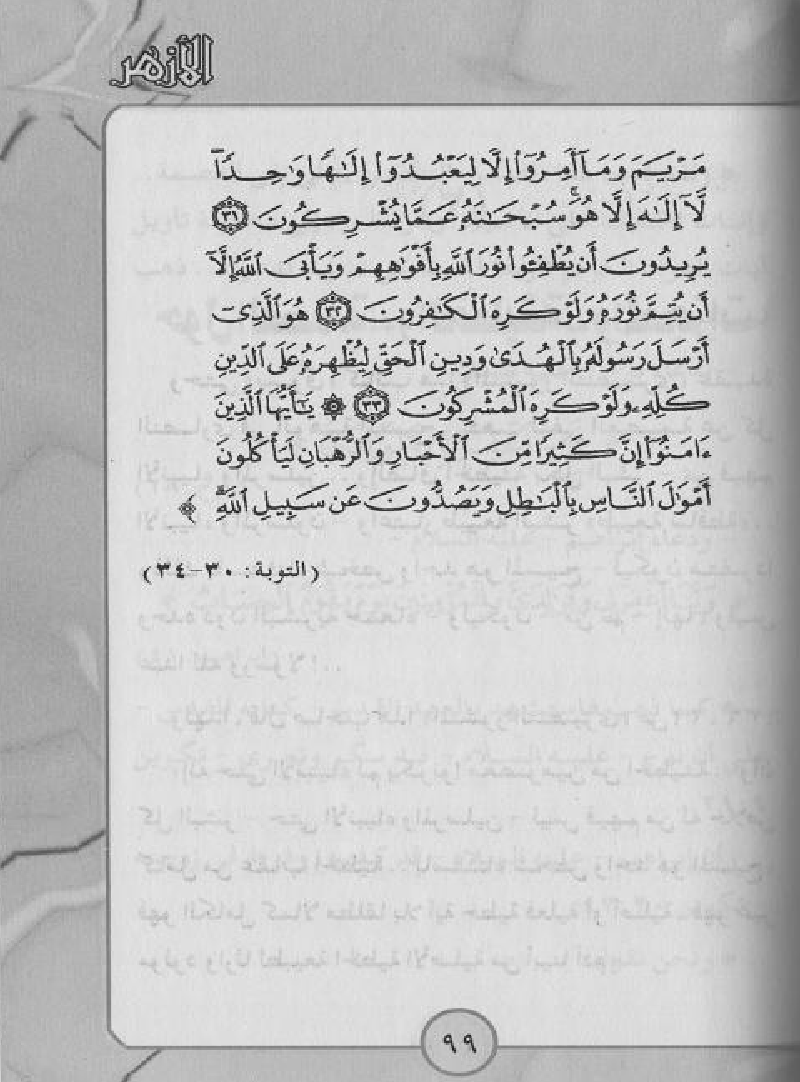 الأزهر
مَرْيَمَ وَمَآ أُمِرُوٓا۟ إِلَّا لِيَعْبُدُوٓا۟ إِلَٰهًا وَٰحِدًاۖ
لَّآ إِلَٰهَ إِلَّا هُوَۚ سُبْحَٰنَهُۥ عَمَّا يُشْرِكُونَ ﴿٣١﴾
يُرِيدُونَ أَن يُطْفِـُٔوا۟ نُورَ ٱللَّهِ بِأَفْوَٰهِهِمْ وَيَأْبَى ٱللَّهُ إِلَّآ
أَن يُتِمَّ نُورَهُۥ وَلَوْ كَرِهَ ٱلْكَٰفِرُونَ ﴿٣٢﴾ هُوَ ٱلَّذِىٓ
أَرْسَلَ رَسُولَهُۥ بِٱلْهُدَىٰ وَدِينِ ٱلْحَقِّ لِيُظْهِرَهُۥ عَلَى ٱلدِّينِ
كُلِّهِۦ وَلَوْ كَرِهَ ٱلْمُشْرِكُونَ ﴿٣٣﴾ ۞ يَٰٓأَيُّهَا ٱلَّذِينَ
ءَامَنُوٓا۟ إِنَّ كَثِيرًا مِّنَ ٱلْأَحْبَارِ وَٱلرُّهْبَانِ لَيَأْكُلُونَ
أَمْوَٰلَ ٱلنَّاسِ بِٱلْبَٰطِلِ وَيَصُدُّونَ عَن سَبِيلِ ٱللَّهِۗ ﴾
(التوبة: ٣٠-٣٤)
٩٩